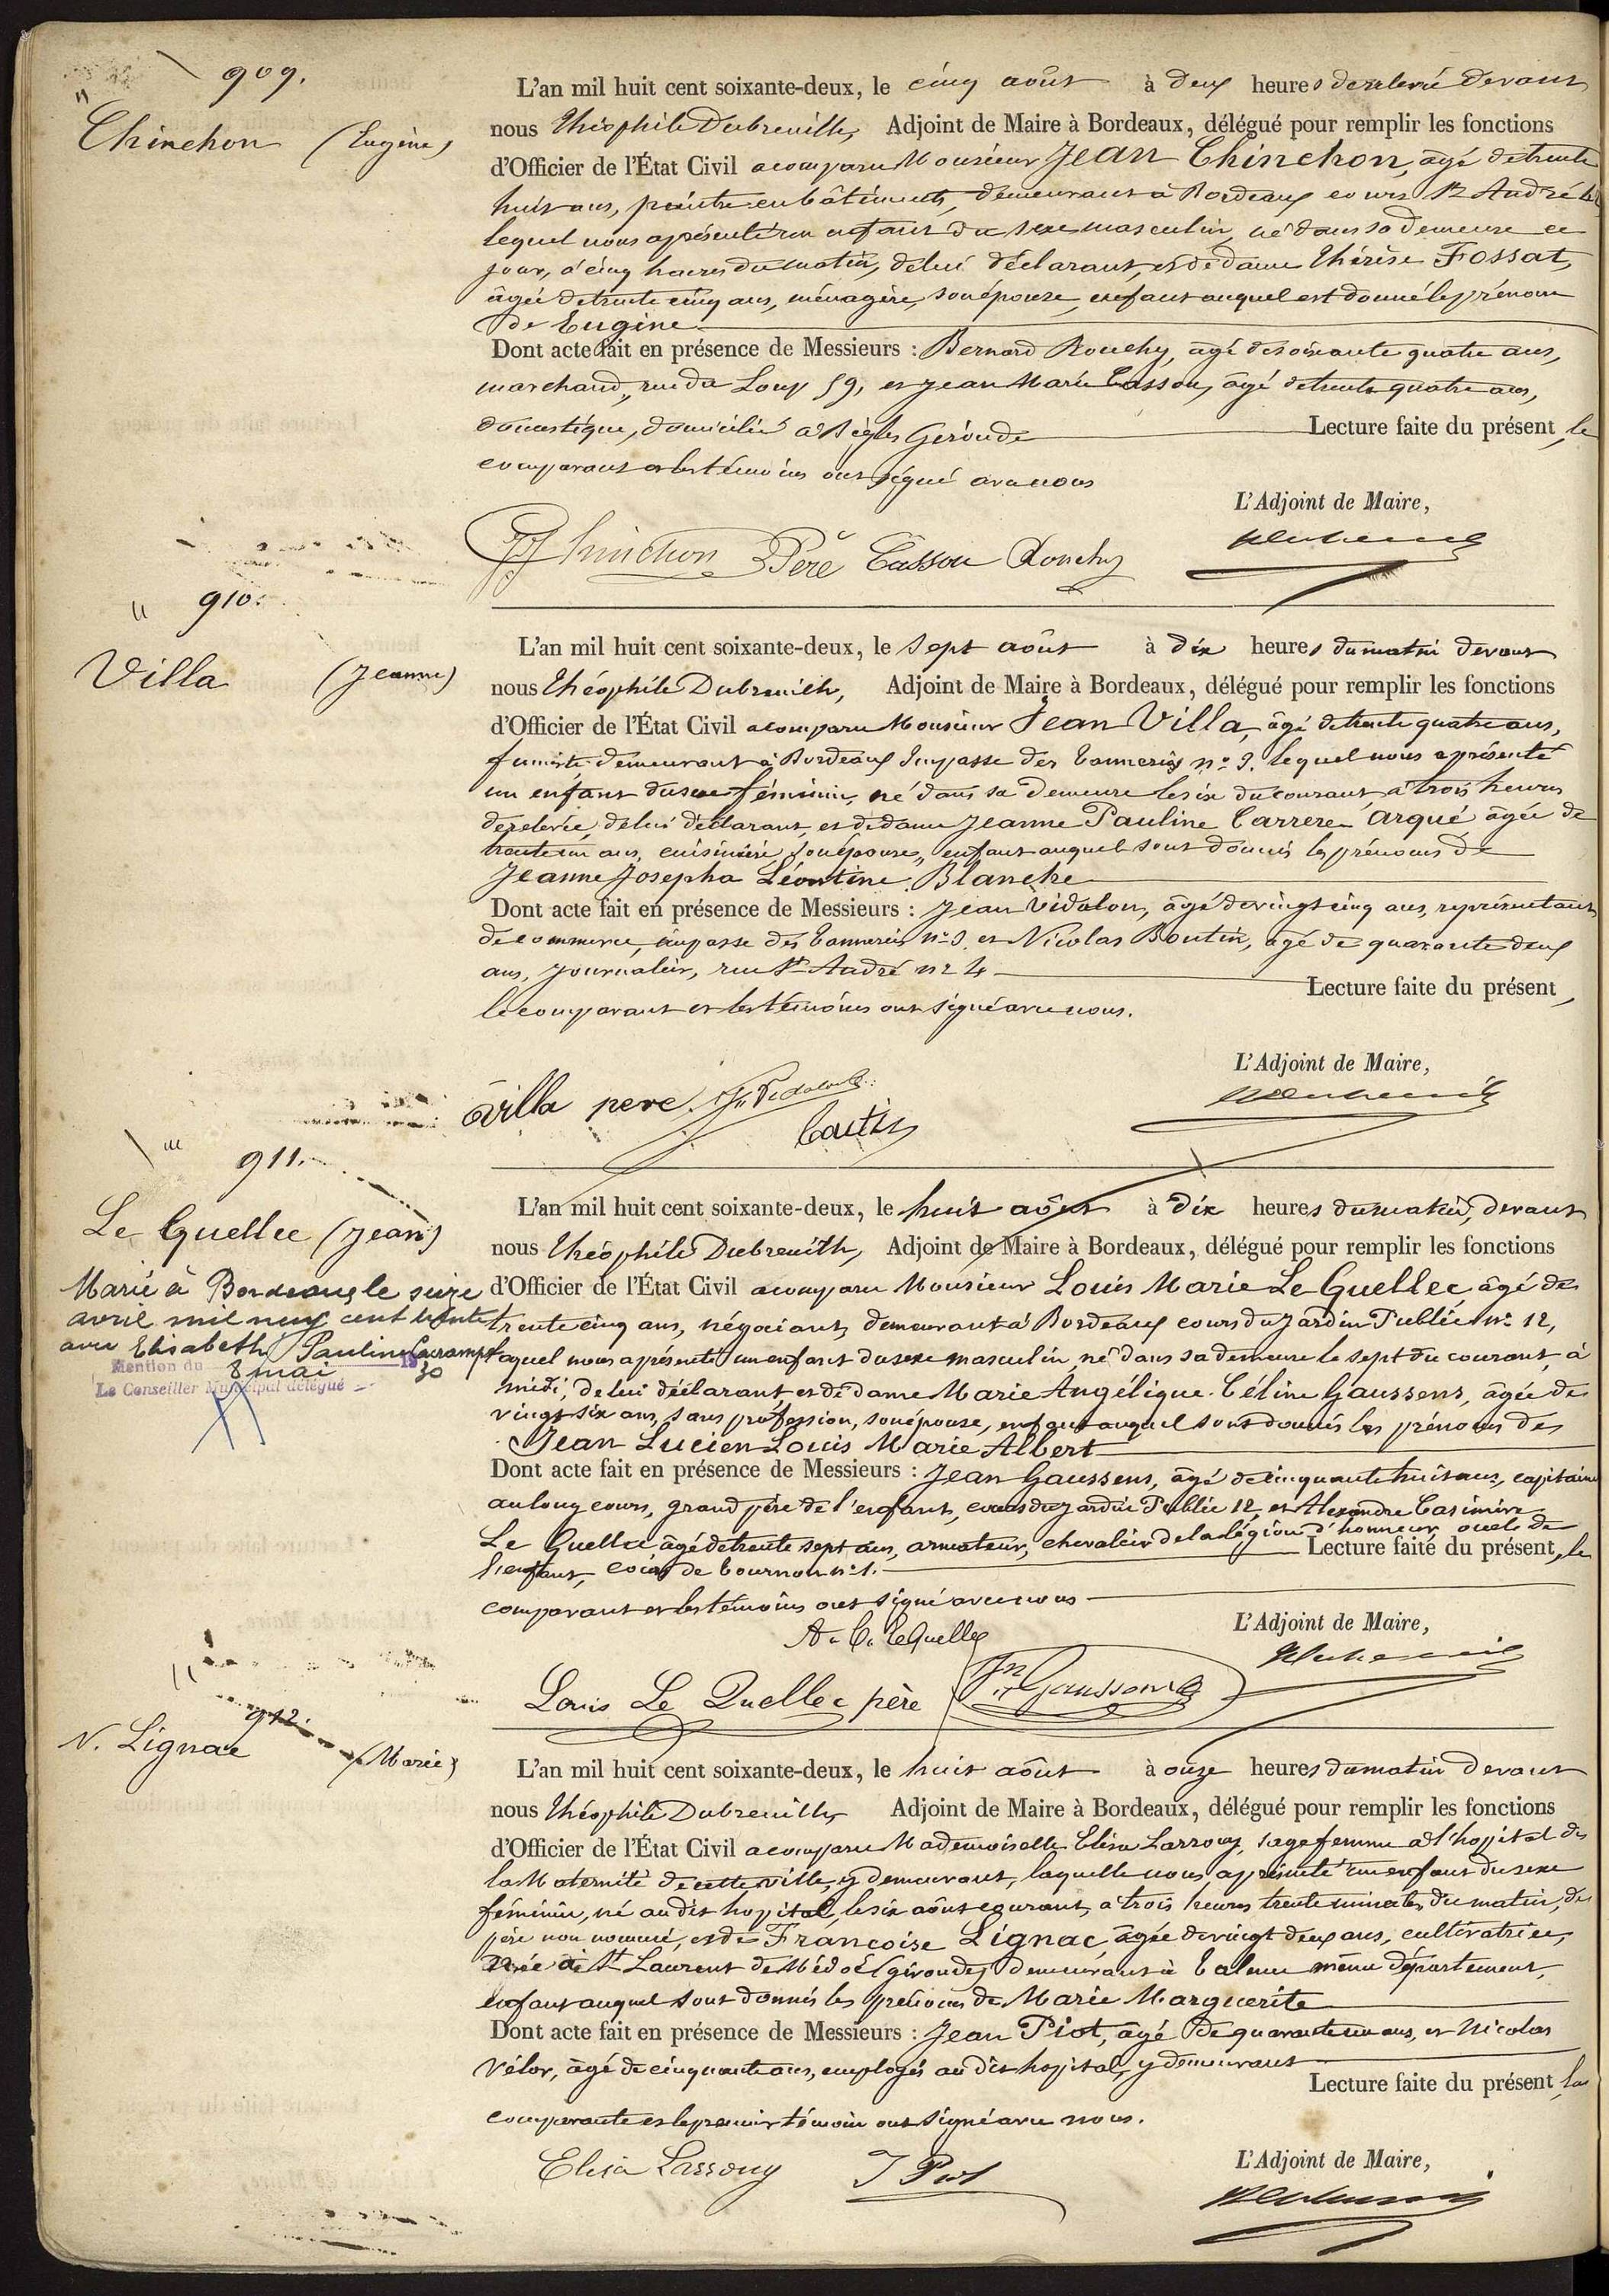 909.
Chinchon (Eugène)
L'an mil huit cent soixante-deux, le cinq août à deux heures de relevée devant
nous Théophile Dubreuilh, Adjoint de Maire à Bordeaux, délégué pour remplir les fonctions
d'Officier de l'État Civil a comparu Monsieur Jean Chinchon, âgé de trente
huit ans, peintre en bâtiments, demeurant à Bordeaux cours St André
lequel nous a présenté un enfant du sexe masculin, né dans sa demeure ce
jour, à cinq heures du matin, de lui déclarant, et de dame Thérèse Fossat,
âgée de trente cinq ans, ménagère, son épouse, enfant auquel est donné le prénom
de Eugène
Dont acte fait en présence de Messieurs : Bernard Rouchy, âgé de soixante quatre ans,
marchand, rue du Loup 59, et Jean Marie Cassou, âgé de trente quatre ans,
domestique, domicilié à Bègles Gironde Lecture faite du présent, le
comparant et les témoins ont signé avec nous
L'Adjoint de Maire,
Chinchon Père Cassou Rouchy
910.
Villa (Jeanne)
L'an mil huit cent soixante-deux, le sept août à dix heures du matin devant
nous Théophile Dubreuilh, Adjoint de Maire à Bordeaux, délégué pour remplir les fonctions
d'Officier de l'État Civil a comparu Monsieur Jean Villa, âgé de trente quatre ans,
fumiste demeurant à Bordeaux Impasse des Tanneries n° 9. lequel nous a présenté
un enfant du sexe féminin, né dans sa demeure le six du courant, à trois heures
de relevée, de lui déclarant, et de dame Jeanne Pauline Carrere Arqué âgée de
trente un ans, cuisinière, son épouse, enfant auquel sont donnés les prénoms de
Jeanne Josepha Léontine Blanche
Dont acte fait en présence de Messieurs : Jean Vidalon, âgé de vingt cinq ans, représentant
de commerce, impasse des Tanneries n° 9. et Nicolas Boutin, âgé de quarante deux
ans, journalier, rue St André n° 4 Lecture faite du présent,
le comparant et les témoins ont signé avec nous.
L'Adjoint de Maire,
Villa pere
Boutin
911.
Le Quellec (Jean)
Marié à Bordeaux le seize
avril mil neuf cent trente
avec Elisabeth Pauline
Mention du 8 mai 1930
Le Conseiller Municipal délégué
L'an mil huit cent soixante-deux, le huit août à dix heures du matin, devant
nous Théophile Dubreuilh, Adjoint de Maire à Bordeaux, délégué pour remplir les fonctions
d'Officier de l'État Civil a comparu Monsieur Louis Marie Le Quellec, âgé de
trente cinq ans, négociant, demeurant à Bordeaux cours du Jardin Public n° 12,
lequel nous a présenté un enfant du sexe masculin, né dans sa demeure le sept du courant, à
midi, de lui déclarant, et de dame Marie Angélique Céline Gaussens, âgée de
vingt six ans, sans profession, son épouse, enfant auquel sont donnés les prénoms de
Jean Lucien Louis Marie Albert
Dont acte fait en présence de Messieurs : Jean Gaussens, âgé de cinquante huit ans, capitaine
au long cours, grand père de l'enfant, cours du Jardin Public 12, et Alexandre Casimir
Le Quellec âgé de trente sept ans, armateur, chevalier de la légion d'honneur, oncle de
l'enfant, cours de Tournon n° 1. Lecture faite du présent, le
comparant et les témoins ont signé avec nous
L'Adjoint de Maire,
A. C. Le Quellec
Louis Le Quellec père Jn Gaussens
912.
N. Lignac (Marie)
L'an mil huit cent soixante-deux, le huit août à onze heures du matin devant
nous Théophile Dubreuilh, Adjoint de Maire à Bordeaux, délégué pour remplir les fonctions
d'Officier de l'État Civil a comparu Mademoiselle Elisa Larrouy, sage femme à l'hopital de
la Maternité de cette ville, y demeurant, laquelle nous a présenté un enfant du sexe
féminin, né au dit hopital, le six août courant, à trois heures trente minutes du matin, de
père non nommé, et de Françoise Lignac, âgée de vingt deux ans, cultivatrice,
née à St Laurent de Médoc (gironde) demeurant à Talence même département,
enfant auquel sont donnés les prénoms de Marie Marguerite
Dont acte fait en présence de Messieurs : Jean Piot, âgé de quarante un ans, et Nicolas
Vélor, âgé de cinquante ans, employés au dit hopital, y demeurant Lecture faite du présent, la
comparante et le premier témoin ont signé avec nous.
L'Adjoint de Maire,
Elisa Larrouy J Piot